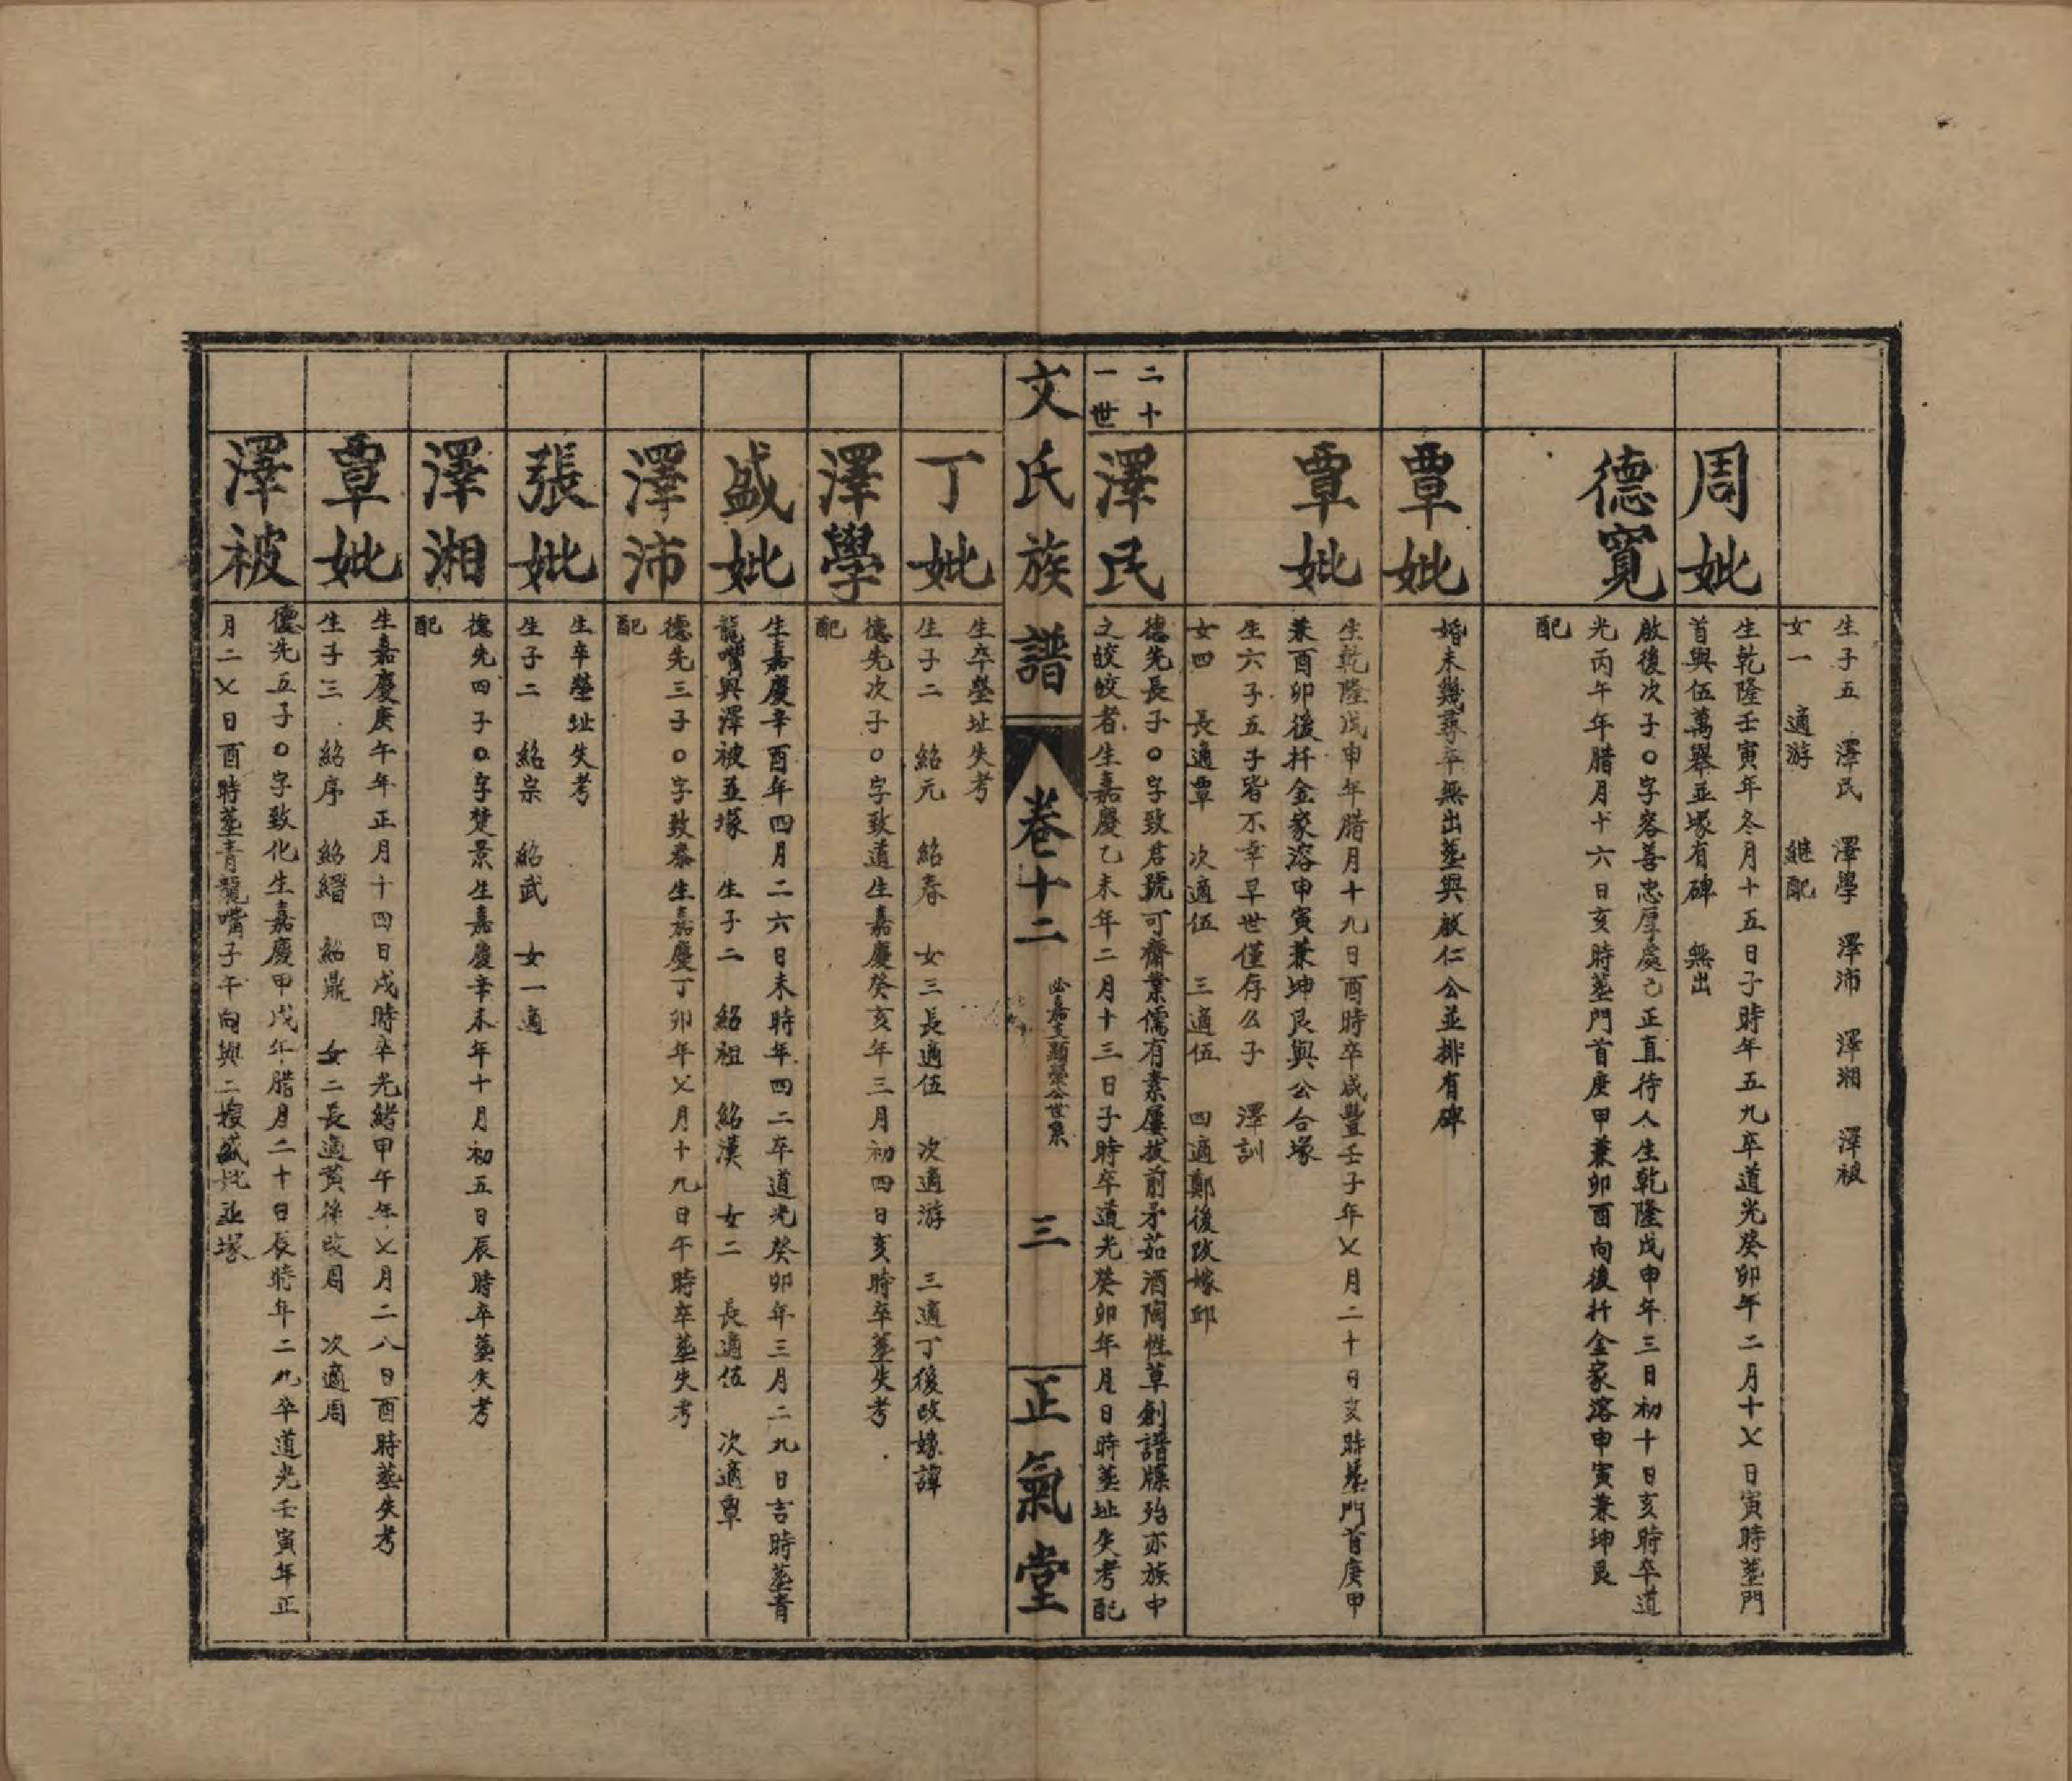 生子五 澤民 澤學 澤沛 澤湘 澤被
女一 適游 継配
周妣
生乾隆壬寅年冬月十五日子時年五九卒道光癸卯年二月十乂日寅時塟門
首與伍萬舉並塚有碑 無出
德寬
啟後次子〇字容善忠厚處己正直待人生乾隆戊申年三日初十日亥時卒道
光丙午年腊月十六日亥時塟門首庚甲兼卯酉向後扦金家溶申寅兼坤艮
配
覃妣
婚未幾尋卒無出塟與啟仁公並排有碑
覃妣
生乾隆戊申年腊月十九日酉時卒咸豐壬子年乂月二十日亥時塟門首庚甲
兼酉卯後扦金家溶申寅兼坤艮與公合塚
生六子五子皆不幸早世僅存么子 澤訓
女四 長適覃 次適伍 三適伍 四適鄭後改嫁邱
二十
一世
澤民
德先長子〇字致君號可齋業儒有素屢拔前矛茹酒陶性草創譜牒殆亦族中
之皎皎者生嘉慶乙未年二月十三日子時卒道光癸卯年月日時塟址失考配
文氏族譜 卷十二 必嘉支顯榮公世系 三 正氣堂
丁妣
生卒塋址失考
生子二 紹元 紹春 女三長適伍 次適游 三適丁後改嫁諱
澤學
德先次子〇字致道生嘉慶癸亥年三月初四日亥時卒塟失考
配
盛妣
生嘉慶辛酉年四月二六日未時年四二卒道光癸卯年三月二九日吉時塟青
龍嘴與澤被並塚 生子二 紹祖 紹漢 女二 長適伍 次適覃
澤沛
德先三子〇字致泰生嘉慶丁卯年乂月十九日午時卒塟失考
配
張妣
生卒塋址失考
生子二 紹宗 紹武 女一適
澤湘
德先四子〇字楚景生嘉慶辛未年十月初五日辰時卒塟失考
配
覃妣
生嘉慶庚午年正月十四日戌時卒光緒甲午年乂月二八日酉時塟失考
生子三 紹序 紹縉 紹鼎 女二長適黃後改周 次適周
澤被
德先五子〇字致化生嘉慶甲戌年腊月二十日辰時年二九卒道光壬寅年正
月二乂日酉時塟青龍嘴子午向與二嫂盛妣並塚